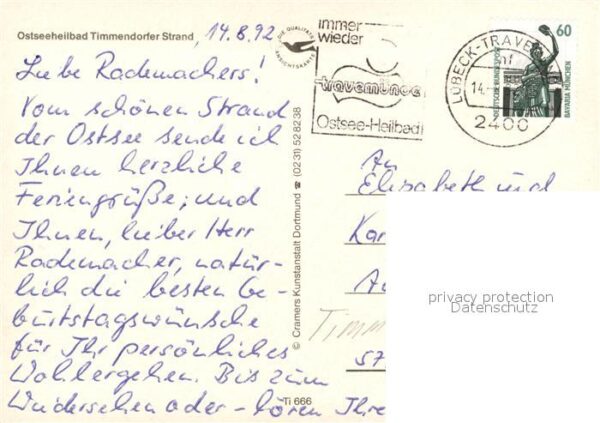 Ostseeheilbad Timmendorfer Strand, 14.8.92
Liebe Rademachers!
Vom schönen Strand
der Ostsee sende ich
Ihnen herzliche
Feriengrüße; und
Ihnen, lieber Herr
Rademacher, natür-
lich die besten Ge-
burtstagswünsche
für Ihr persönliches
Wohlergehen. Bis zum
Wiedersehen oder -hören Ihre
DIE QUALITÄTS
ANSICHTSKARTE
© Cramers Kunstanstalt Dortmund ☎ (0231) 528238
Ti 666
immer
wieder
travemünde
Ostsee-Heilbad
LÜBECK-TRAVEM
14.
2400
60
DEUTSCHE BUNDESPOST
BAVARIA MÜNCHEN
An
Elisabeth und
Kar
Timm
57
privacy protection
Datenschutz